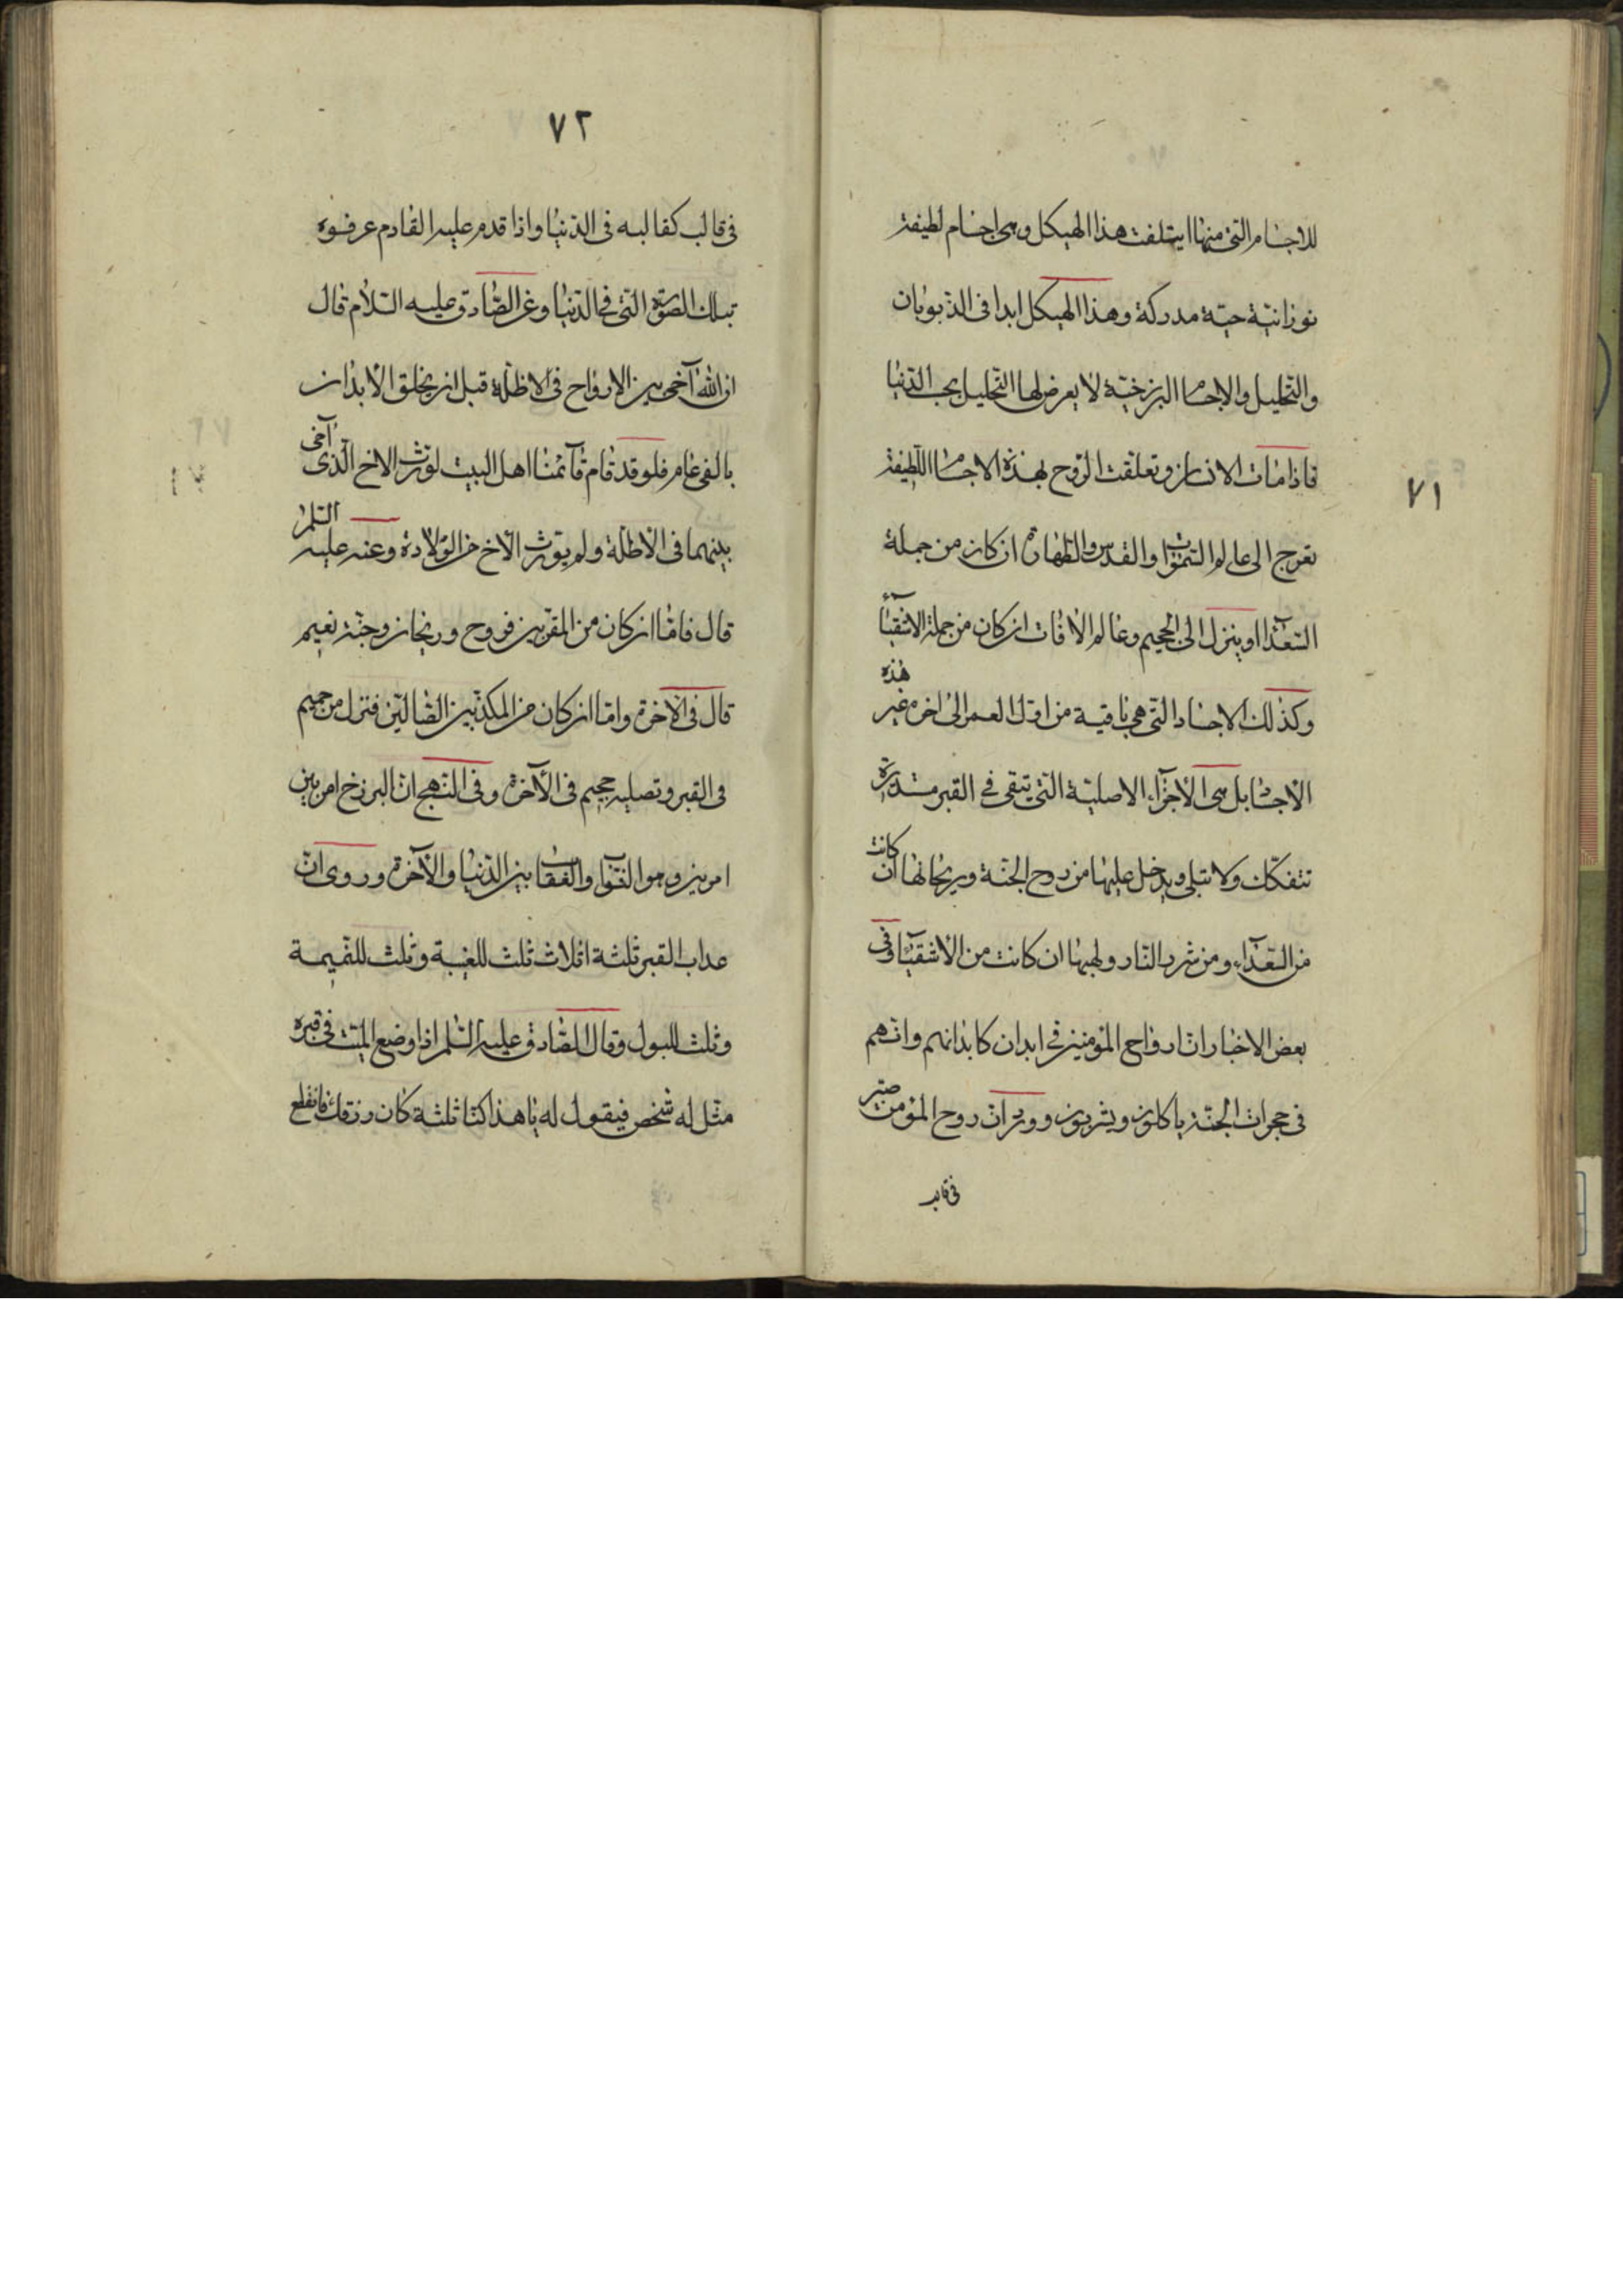 ٧١
للاجسام التى منها ايتلفت هذا الهيكل وهى اجسام لطيفة
نورانيّة حيّة مدركة وهذا الهيكل ابدا فى الذّوبان
والتّحليل والاجسام البرزخيّة لا يعرض لها التّحليل بحب الدّنيا
فاذا مات الانسان وتعلّقت الرّوح بهذه الاجسام اللّطيفة
تعرج الى عالم السّموات والقدس والطّهارة ان كان من جملة
السّعدآء او ينزل الى الجحيم وعالم الآفات ان كان من جملة الاشقيآء
وكذلك الاجساد التى هى باقية من اوّل العمر الى اخره غير هذه
الاجسام بل هى الاجزآء الاصليّة التى تبقى فى القبر مستديرة
تتفكّك ولا تبلى ويدخل عليها من روح الجنّة وريحانها ان كانت
من السّعدآء ومن شرر النّار ولهبها ان كانت من الاشقيآء وفى
بعض الاخبار انّ ارواح المؤمنين فى ابدان كابدانهم وانّهم
فى حجرات الجنّة ياكلون ويشربون وورد انّ روح المؤمن صيّر
فى قالب
٧٢
فى قالب كقالبه فى الدّنيا واذا قدم عليه القادم عرفوه
بتلك الصّورة التى فى الدّنيا وعن الصّادق عليه السّلام قال
ان اللّه آخى بين الارواح فى الاظلّة قبل ان يخلق الابدان
بالفى عام فلو قد قام قآئمنا اهل البيت لورّث الاخ الّذى آخى
بينهما فى الاظلّة ولم يورّث الاخ من الولادة وعنه عليه السّلم
قال فامّا ان كان من المقرّبين فروح وريحان وجنّة نعيم
قال فى الآخرة وامّا ان كان من المكذّبين الضّالّين فنزل من حميم
فى القبر وتصلية جحيم فى الآخرة وفى النّهج انّ البرزخ امر بين
امرين وهو الثّواب والعقاب بين الدّنيا والآخرة وروى انّ
عذاب القبر ثلثة اثلاث ثلث للغيبة وثلث للنّميمة
وثلث للبول وقال الصّادق عليه السّلم اذا وضع الميّت فى قبره
مثّل له شخص فيقول له يا هذا كنّا ثلثة كان رزقك فانقطع